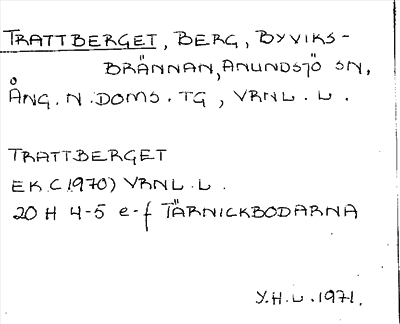 TRATTBERGET, BERG, BYVIKS-
BRÄNNAN, ANUNDSJÖ SN,
ÅNG. N. DOMS. TG, VRNL. L.
TRATTBERGET
EK.C(1970) VRNL. L.
20 H 4-5 e-f TÄRNICKBODARNA
Y.H.L. 1971.